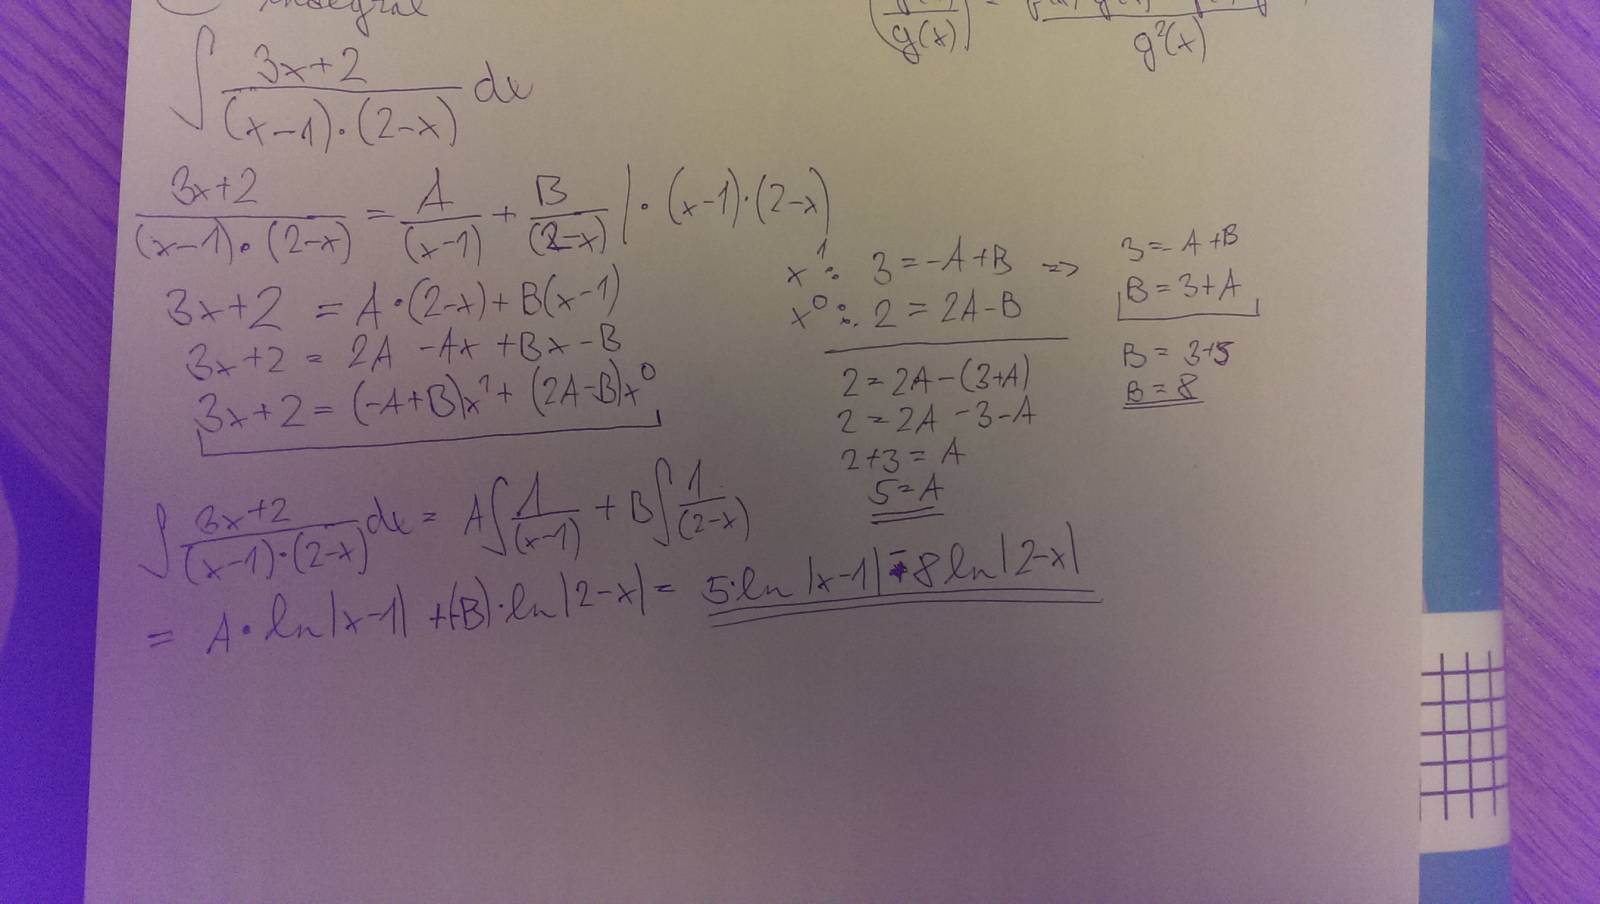 integral
∫ (3x+2)/((x-1)·(2-x)) dx
g(x)
g²(x)
(3x+2)/((x-1)·(2-x)) = A/(x-1) + B/(2-x) |·(x-1)·(2-x)
3x+2 = A·(2-x)+B(x-1)
3x+2 = 2A -Ax +Bx -B
3x+2 = (-A+B)x¹ + (2A-B)x⁰
x¹: 3 = -A+B =>
x⁰: 2 = 2A-B
2 = 2A-(3+A)
2 = 2A -3-A
2+3 = A
5 = A
3 = -A+B
B = 3+A
B = 3+5
B = 8
∫ (3x+2)/((x-1)·(2-x)) dx = A∫ 1/(x-1) + B∫ 1/(2-x)
= A·ln|x-1| +(-B)·ln|2-x| = 5·ln|x-1| - 8ln|2-x|